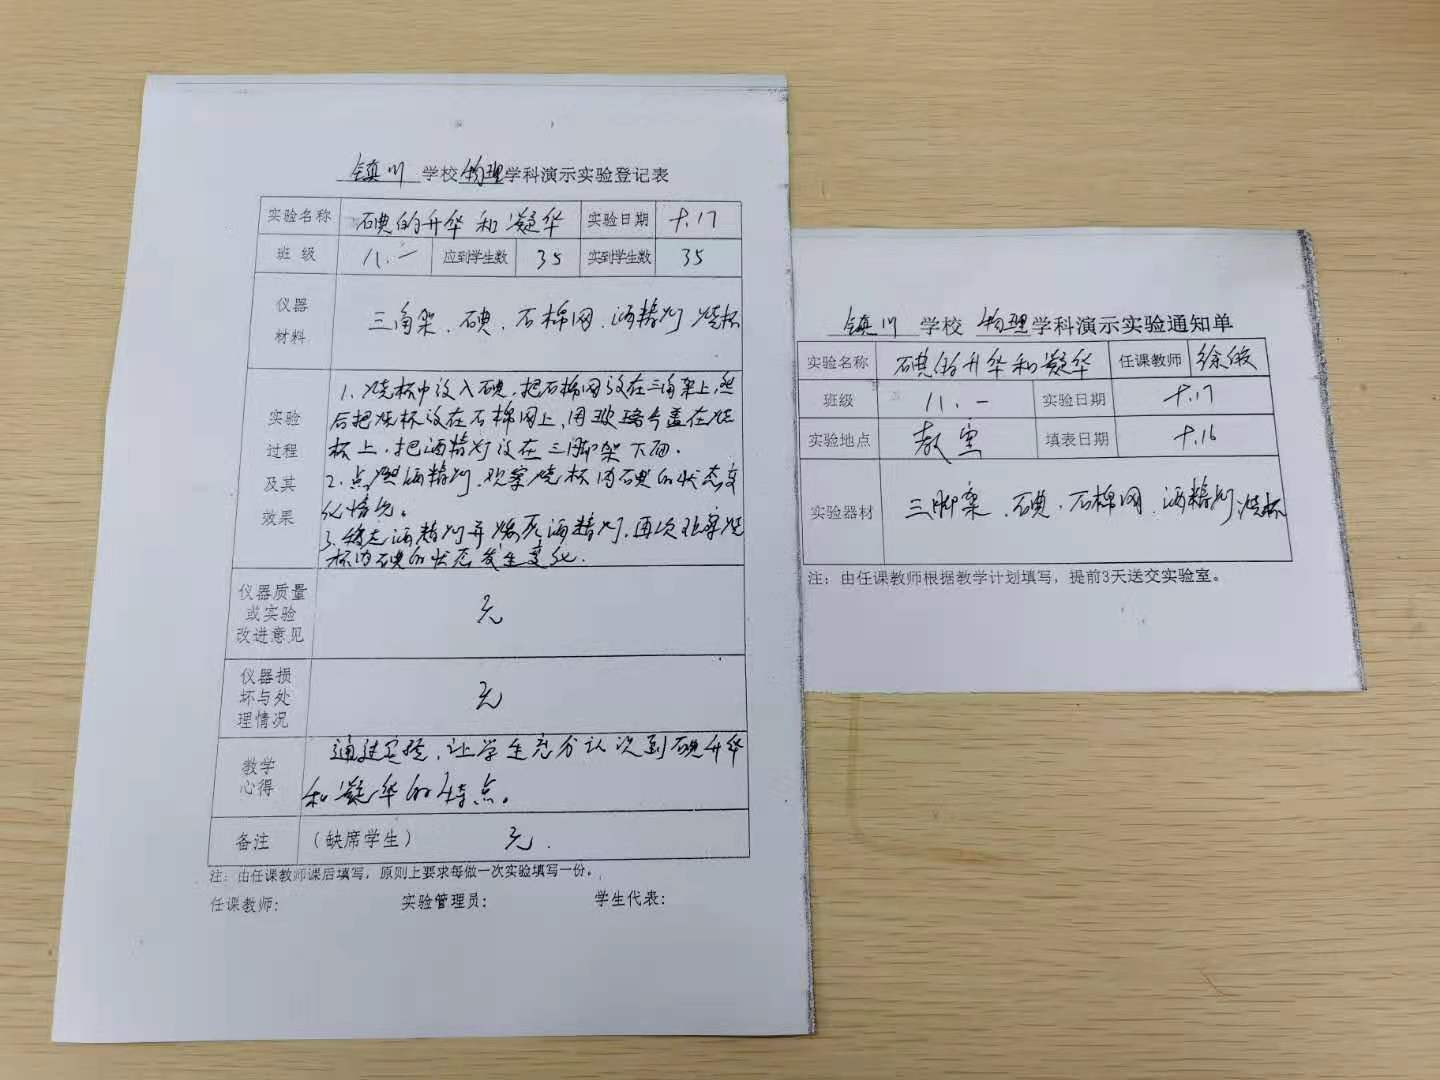 镇川学校物理学科演示实验登记表
实验名称 碘的升华和凝华 实验日期 9.17
班级 八.一 应到学生数 35 实到学生数 35
仪器材料 三角架、碘、石棉网、酒精灯 烧杯
实验过程及其效果
1、烧杯中放入碘,把石棉网放在三角架上,然
后把烧杯放在石棉网上,用玻璃片盖在烧
杯上,把酒精灯放在三脚架下面.
2、点燃酒精灯,观察烧杯内碘的状态变
化情况。
3、移走酒精灯并熄灭酒精灯,再次观察烧
杯内碘的状态发生变化.
仪器质量或实验改进意见 无
仪器损坏与处理情况 无
教学心得
通过实验,让学生充分认识到碘升华
和凝华的特点。
备注 (缺席学生) 无.
注:由任课教师课后填写,原则上要求每做一次实验填写一份。
任课教师: 实验管理员: 学生代表:
镇川学校 物理学科演示实验通知单
实验名称 碘的升华和凝华 任课教师 徐俊
班级 八.一 实验日期 9.17
实验地点 教室 填表日期 9.16
实验器材 三脚架、碘、石棉网、酒精灯 烧杯
注:由任课教师根据教学计划填写,提前3天送交实验室。